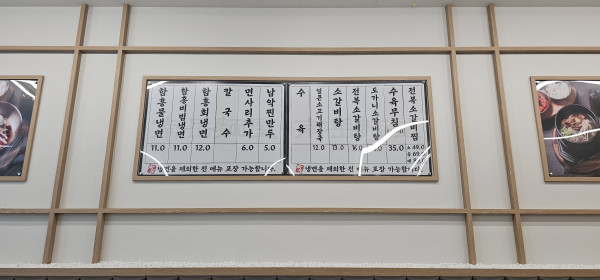 함흥물냉면 11.0
함흥비빔냉면 11.0
함흥회냉면 12.0
칼국수
면사리추가 6.0
남악찐만두 5.0
냉면을 제외한 전 메뉴 포장 가능합니다.
수육
얼큰소고기해장국 12.0
소갈비탕 13.0
전복소갈비탕 16.0
도가니소갈비탕
수육무침 35.0
전복소갈비찜 소 49.0
냉면을 제외한 전 메뉴 포장 가능합니다.